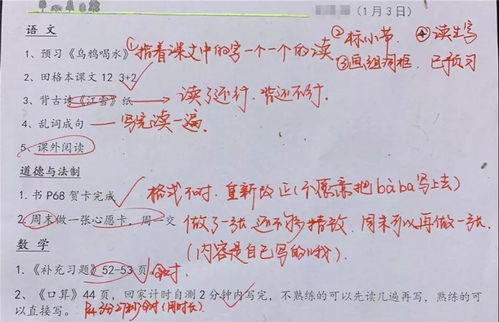 (1月3日)
语 文
1、预习《乌鸦喝水》①指着课文中的字一个一个的读 ②标小节 ④读生字
③画组词框,已预习
2、田格本课文 12 3+2
3、背古诗《江雪》纸 → 读了还行,背还不行.
4、乱词成句 — 写完读一遍.
5、课外阅读
道德与法制
1、书 P68 贺卡完成 格式不对,重新改正(不愿意把bàba写上去)
2、周末做一张心愿卡,周一交 做了一张,还不够精致,周末可以再做一张.
(内容是自己写的).
数 学
1、《补充习题》52-53 页
2、《口算》44 页,回家计时自测 2 分钟内写完,不熟练的可以先读几遍再写,熟练的可
以直接写。